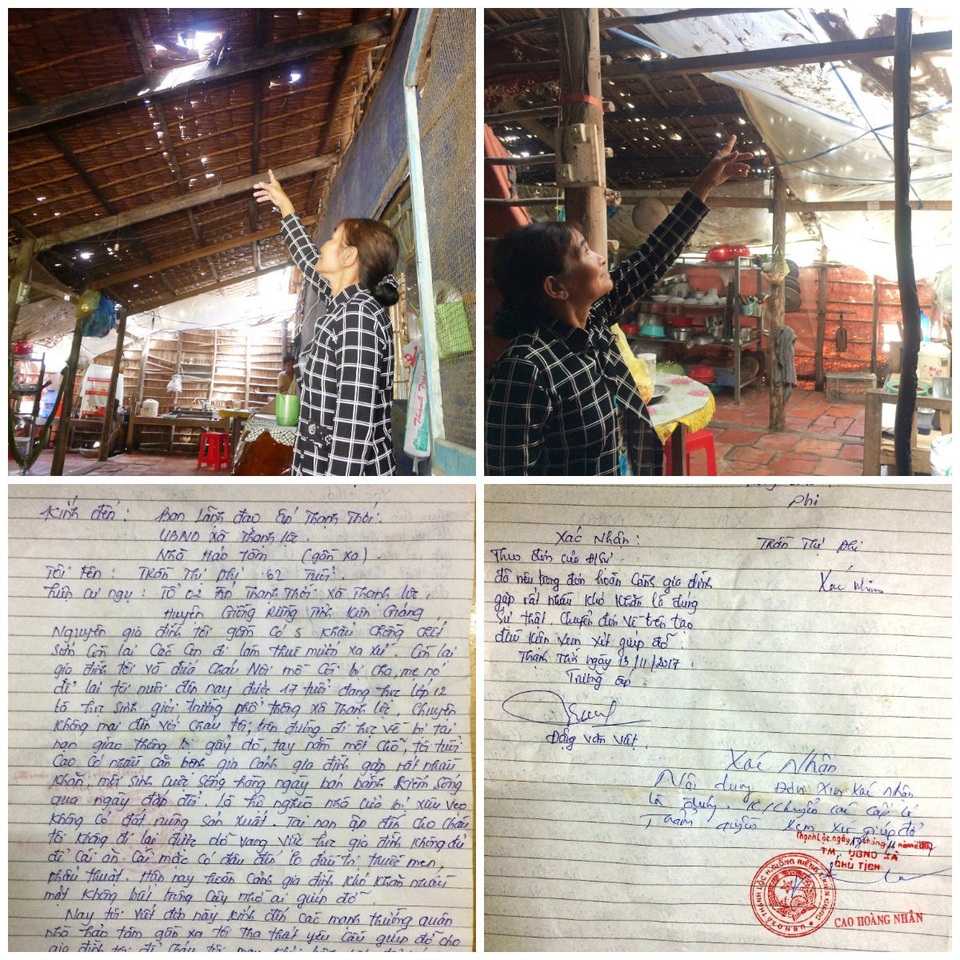 Kính đến: Ban lãnh đạo ấp Thạnh Thới.
UBND xã Thạnh Lộc
Nhà Hảo Tâm (gần xa).
Tôi tên: Trần Thị Phị 62 Tuổi.
Hiện cư ngụ: Tổ 02 ấp Thạnh Thới xã Thạnh Lộc,
Huyện Giồng Riềng Tỉnh Kiên Giang
Nguyên gia đình tôi gồm có 5 khẩu chồng chết
sớm còn lại các con đi làm thuê mướn xa xứ. Còn lại
gia đình tôi và đứa cháu Nội mồ côi bị cha, mẹ nó
để lại tôi nuôi đến nay được 17 tuổi đang học lớp 12
là học sinh giỏi trường phổ thông xã Thạnh Lộc. Chuyện
không mai đến với cháu tôi, trên đường đi học về bị tai
nạn giao thông bị gãy đò, tay nằm một chỗ, tôi tuổi
cao có nhiều căn bệnh già cảnh gia đình gặp rất nhiều
khăn, mưu sinh cuộc sống hàng ngày bán bánh kiếm sống
qua ngày đắp đổi. là hộ nghèo nhà cửa bị xiêu vẹo
không có đất ruộng sản xuất. Tai nạn ập đến cho cháu
tôi không đi lại được dở vang vực học gia đình không đủ
để cái ăn. cái mặc có đâu đến lo điều trị thuốc men,
phẩu thuật. Hiện nay hoàn cảnh gia đình khó khăn nhiều
mặt không biết trông cậy nhờ ai giúp đỡ
Nay tôi viết đơn này kính đến các mạnh thường quân
nhà hảo tâm gần xa tôi tha thiết yêu cầu giúp đỡ cho
gia đình tôi để cháu tôi
Phị
Xác Nhận: Trần Thị Phị
Theo đơn của
đã nêu trong đơn hoàn cảnh gia đình
gặp rất nhiều khó khăn là đúng
sự thật. Chuyển đơn về trên tạo
điều kiện xem xét giúp đỡ
Thạnh Thới ngày 13/11/2017
Trưởng ấp
Đồng Văn Vất.
Xác Nhận
Nội dung Đơn xin xác nhận
là đúng. K/chuyển các cấp có
Thẩm quyền xem xét giúp đỡ
Thạnh Lộc, ngày tháng năm
TM. UBND XÃ
CHỦ TỊCH
CAO HOÀNG NHÂN